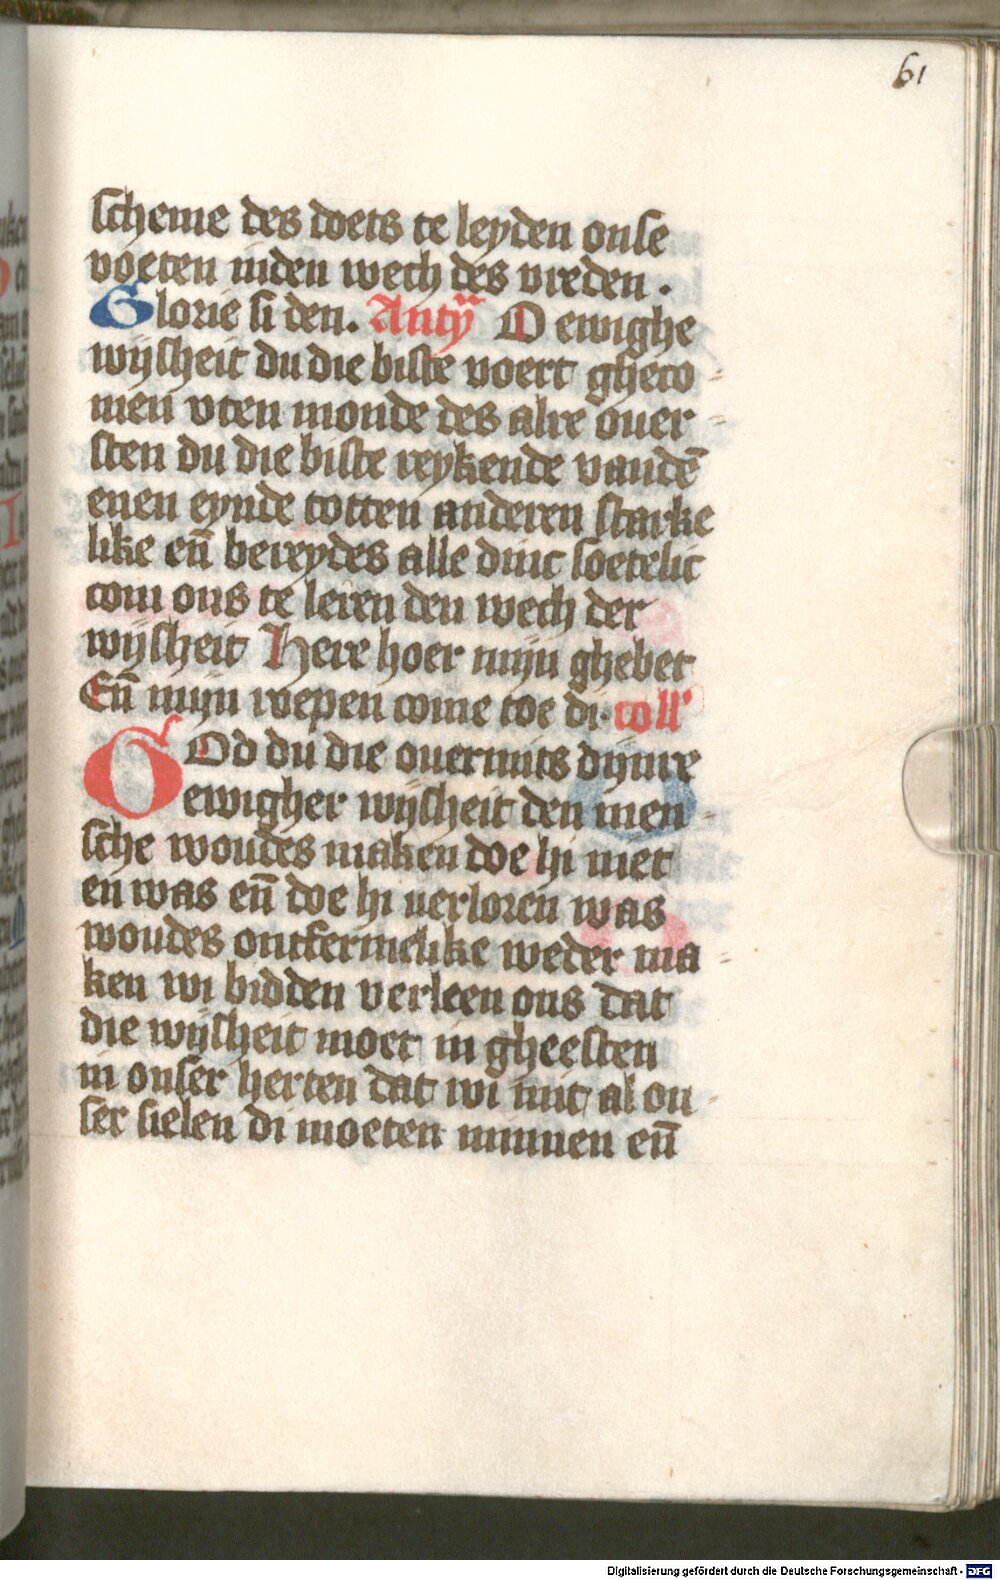 61
scheme des doets te leyden onse
voeten inden wech des vreden.
Glorie si den. Anty^a O ewighe
wijsheit du die biste voert gheco-
men vten monde des alre ouer-
sten du die biste reykende vandē
enen eynde totten anderen starke
like eñ bereydes alle dinc soetelic
com ons te leren den wech der
wijsheit Here hoer mijn ghebet
Eñ mijn roepen come toe di. coll'
God du die ouermits dijnre
ewigher wijsheit den men-
sche woudes maken doe hi niet
en was eñ doe hi verloren was
woudes ontfermelike weder ma-
ken wi bidden verleen ons dat
die wijsheit moet in gheesten
in onser herten dat wi mit al on-
ser sielen di moeten minnen eñ
Digitalisierung gefördert durch die Deutsche Forschungsgemeinschaft - DFG